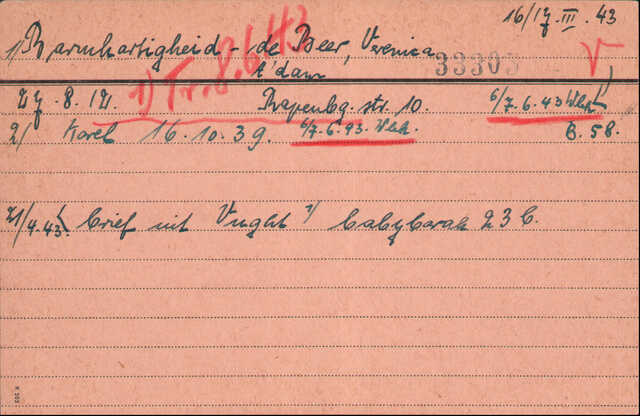 16/17.III.43
1) Barmhartigheid - de Beer, Veronica
33303 V
A'dam
1) Tr. 8.6.43
27.8.12. Rapenbg. str. 10. 6/7.6.43 Wbk
2/ Karel 16.10.39. 6/7.6.43. Wbk. B.58.
21/4.43. brief uit Vught 1/ babybarak 23 b.